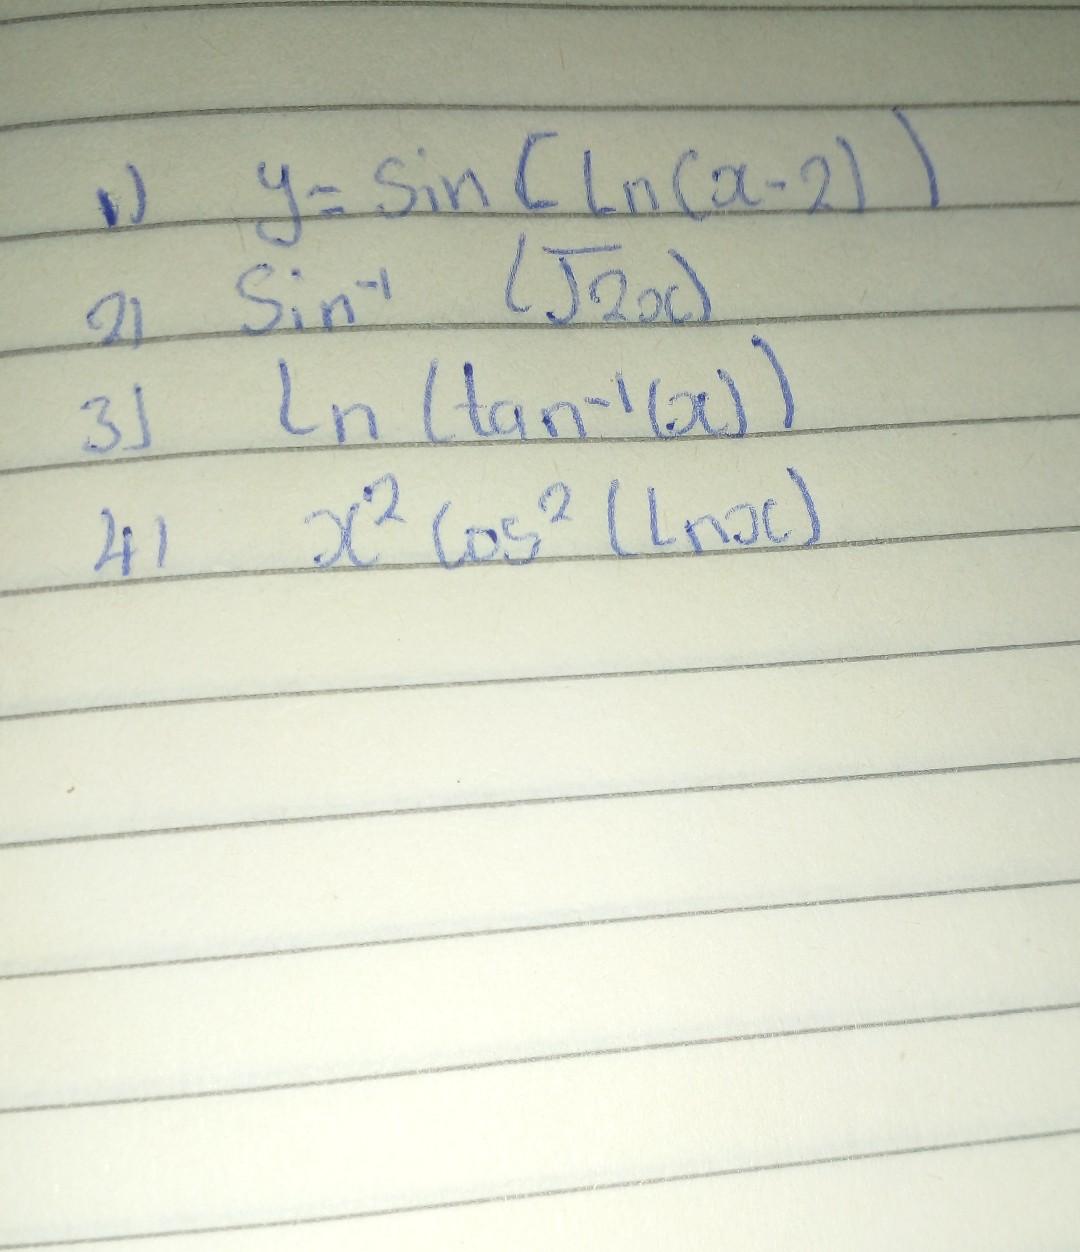 1) y = Sin (Ln(x-2))
2) Sin⁻¹ (√2x)
3) Ln (tan⁻¹(x))
4) x² Cos² (Lnx)